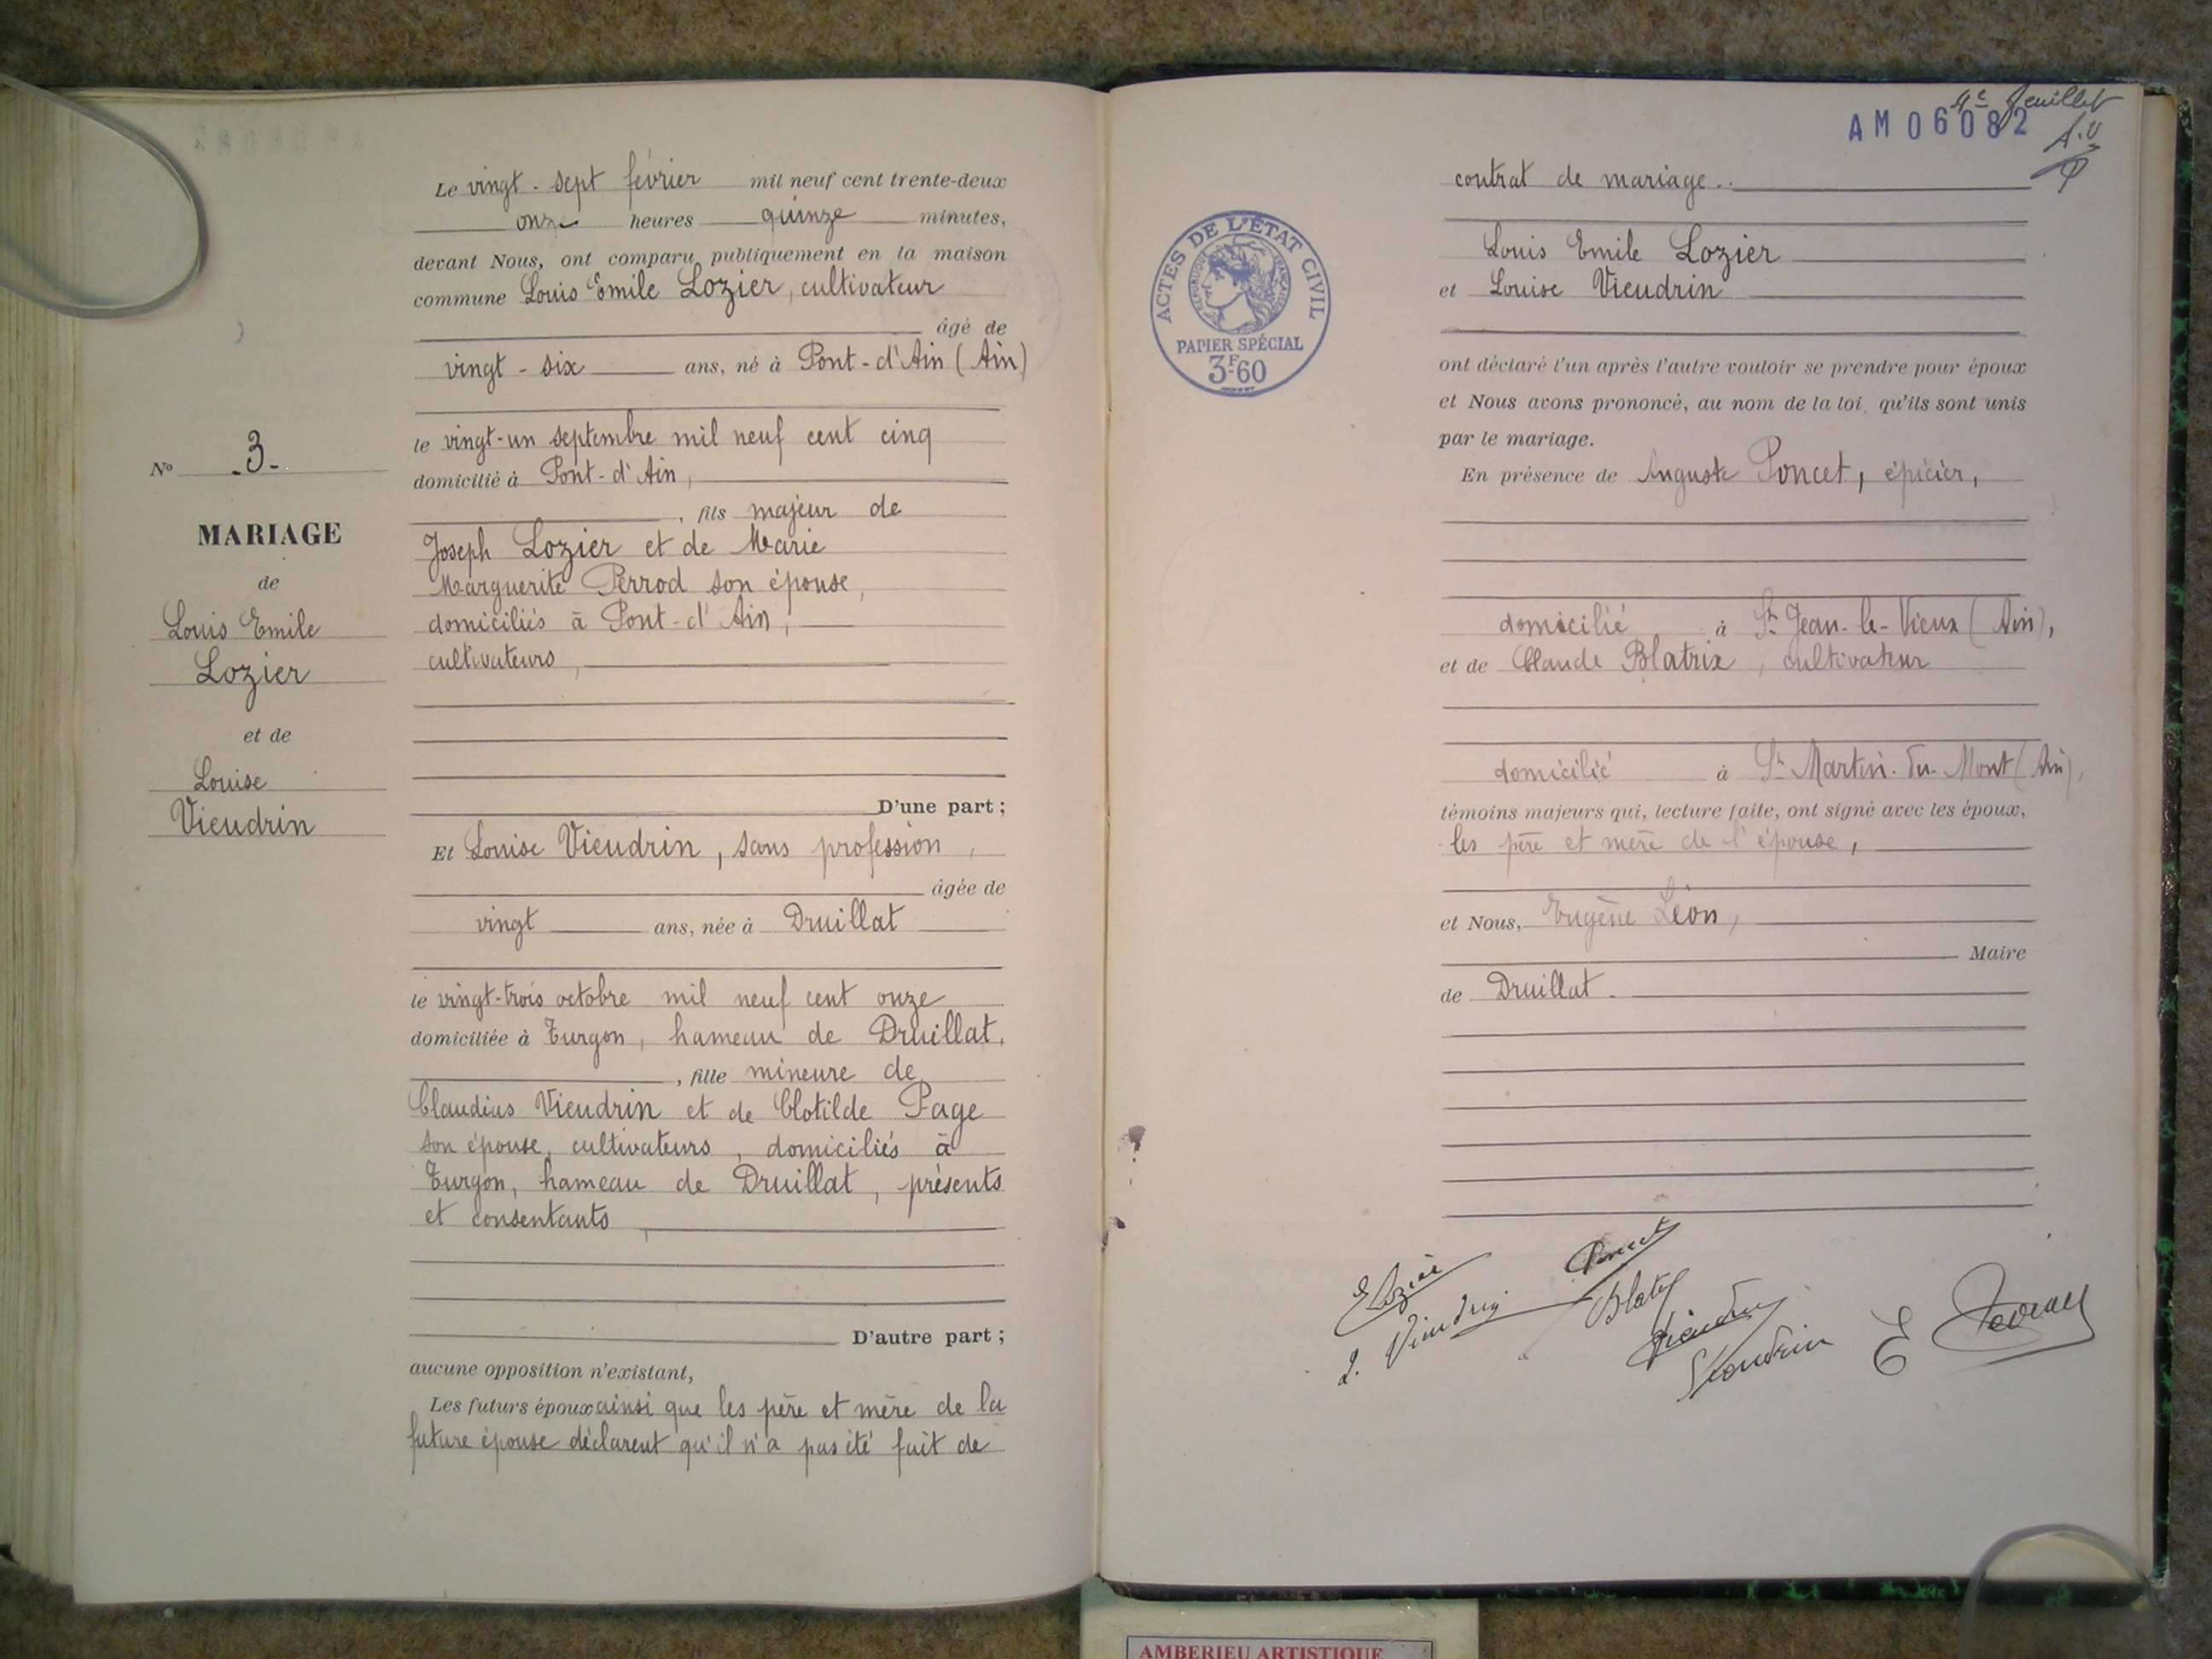 Le vingt-sept février mil neuf cent trente-deux
onze heures quinze minutes,
devant Nous, ont comparu publiquement en la maison
commune Louis Emile Lozier, cultivateur
âgé de
vingt-six ans, né à Pont-d'Ain (Ain)
le vingt-un septembre mil neuf cent cinq
domicilié à Pont-d'Ain,
, fils majeur de
Joseph Lozier et de Marie
Marguerite Perrod son épouse,
domiciliés à Pont-d'Ain,
cultivateurs,
D'une part ;
Et Louise Vieudrin, sans profession,
âgée de
vingt ans, née à Druillat
le vingt-trois octobre mil neuf cent onze
domiciliée à Turgon, hameau de Druillat,
, fille mineure de
Claudius Vieudrin et de Clotilde Page
son épouse, cultivateurs, domiciliés à
Turgon, hameau de Druillat, présents
et consentants,
D'autre part ;
aucune opposition n'existant,
Les futurs époux ainsi que les père et mère de la
future épouse déclarent qu'il n'a pas été fait de
No -3-
MARIAGE
de
Louis Emile
Lozier
et de
Louise
Vieudrin
4e feuillet
AM06082
contrat de mariage..
Louis Emile Lozier
et Louise Vieudrin
ont déclaré l'un après l'autre vouloir se prendre pour époux
et Nous avons prononcé, au nom de la loi, qu'ils sont unis
par le mariage.
En présence de Auguste Poncet, épicier,
domicilié à St Jean-le-Vieux (Ain),
et de Claude Blatrix, cultivateur
domicilié à St Martin-du-Mont (Ain),
témoins majeurs qui, lecture faite, ont signé avec les époux,
les père et mère de l'épouse,
et Nous, Eugène Léon,
Maire
de Druillat.
ACTES DE L'ÉTAT CIVIL
RÉPUBLIQUE FRANÇAISE
PAPIER SPÉCIAL
3F60
E Lozier
Poncet
L. Vieudrin
AMBERIEU ARTISTIQUE